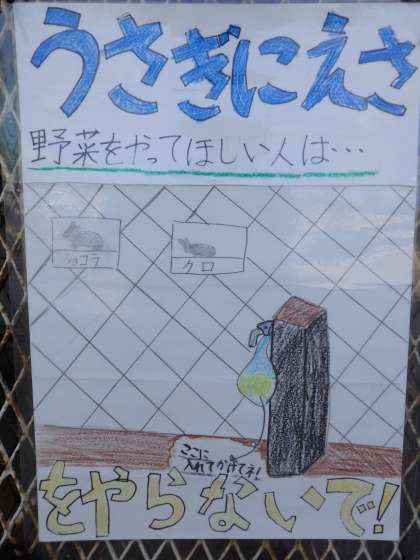 うさぎにえさ
野菜をやってほしい人は…
ショコラ
クロ
ここに
入れてかけてネ!
をやらないで!